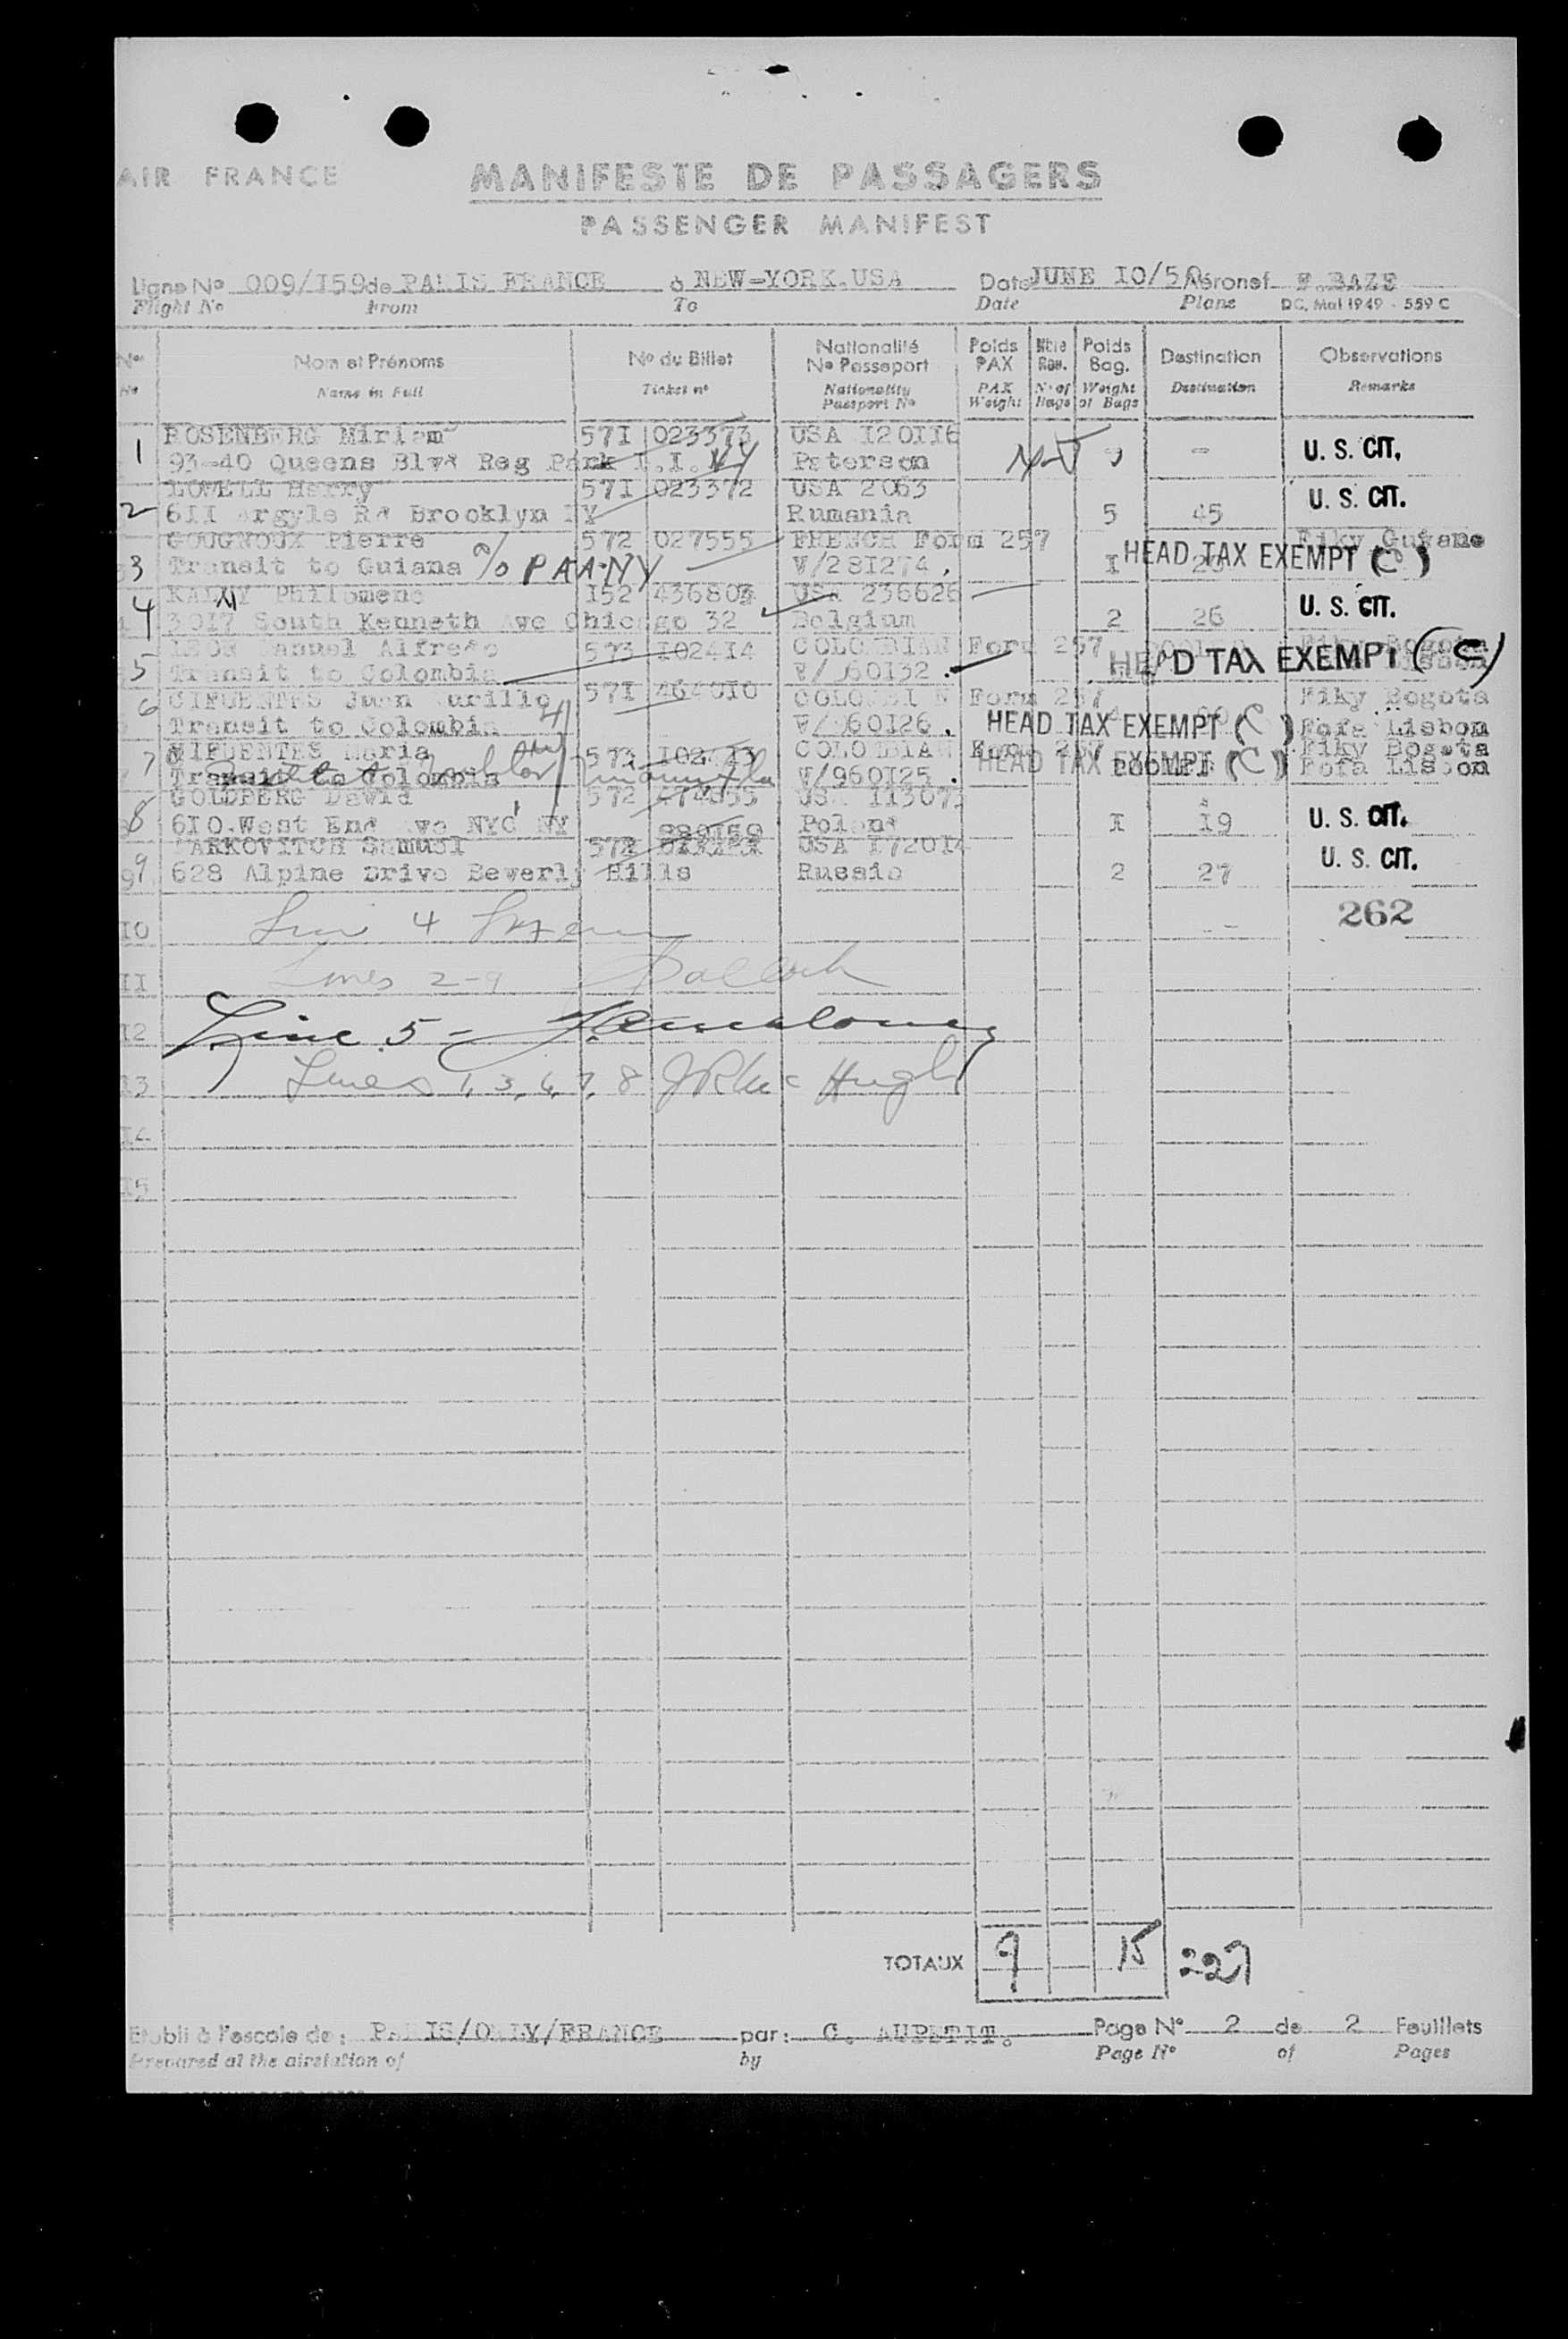 AIR FRANCE
MANIFESTE DE PASSAGERS
PASSENGER MANIFEST
Ligne No 009/I59 de PARIS FRANCE à NEW-YORK.USA Date JUNE IO/50 Aéronef F.BAZE
Flight No From To Date Plane DC. Mai 1949 - 559 C
Nos Nom et Prénoms No du Billet Nationalité No Passeport Poids PAX Nbre Bag. Poids Bag. Destination Observations
No Name in Full Ticket no Nationality Passport No PAX Weight No of Bags Weight of Bags Destination Remarks
1 ROSENBERG Miriam 57I 023373 USA I20II6
93-40 Queens Blvd Reg Park L.I. NY Peterson - U. S. CIT.
2 LOWELL Harry 57I 023372 USA 2063
6II Argyle Rd Brooklym NY Rumania 5 45 U. S. CIT.
3 GOUGNOUX Pierre 572 027555 FRENCH Form 257 Fiky Guyane
Transit to Guiana % PAA-NY V/28I274. I HEAD TAX EXEMPT (C)
4 Philomene I52 USA 236626
3017 South Kenneth Ave Chicago 32 Belgium 2 26 U. S. CIT.
5 LEON Manuel Alfredo 573 I024I4 COLOMBIAN Form 257 Fiky Bogota
Transit to Colombia V/960I32. HEAD TAX EXEMPT (C)
6 CIFUENTES Juan 57I 4640I0 COLOMBIAN Form 257 Fiky Bogota
Transit to Colombia V/960I26. HEAD TAX EXEMPT (C) Fofa Lisbon
7 CIFUENTES Maria 573 I024I3 COLOMBIAN Form 257 Fiky Bogota
Transit to Colombia V/960I25. HEAD TAX EXEMPT (C) Fofa Lisbon
8 GOLDBERG David 572 USA II3073
6I0.West End Ave NYC NY Poland I I9 U. S. CIT.
9 MARKOVITCH Samuel 572 USA I720I4
628 Alpine Drive Beverly Hills Russia 2 27 U. S. CIT.
IO Line 4 262
II Lines 2-9
I2 Line 5 -
I3 Lines 1, 3, 6, 7, 8 J R Mc Hugh
I4
I5
TOTAUX 9 15 227
Etabli à l'escale de: PARIS/ORLY/FRANCE par: C. AUPETIT. Page No 2 de 2 Feuillets
Prepared at the airstation of by Page No of Pages